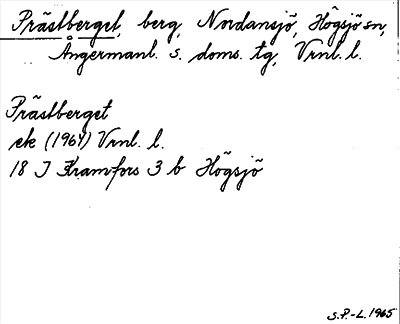 Prästberget, berg, Nordansjö, Högsjö sn,
Ångermanl. s. doms. tg, Vrnl. l.
Prästberget
ek (1964) Vrnl. l.
18 J Kramfors 3 b Högsjö
S.P.-L. 1965